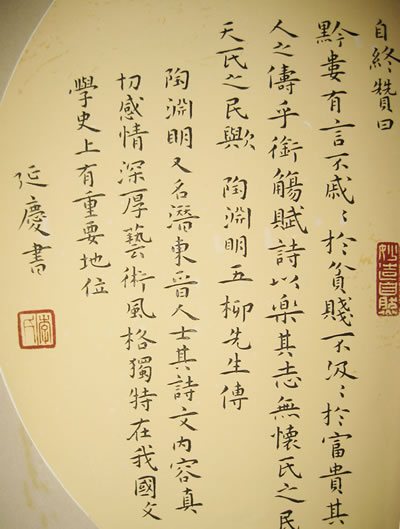 自終贊曰
黔婁有言不戚〻於貧賤不汲〻於富貴其
人之儔乎銜觴賦詩以樂其志無懷氏之民
天氏之民歟 陶淵明五柳先生傳
陶淵明又名潛東晉人士其詩文内容真
切感情深厚藝術風格獨特在我國文
學史上有重要地位
延慶書
李氏